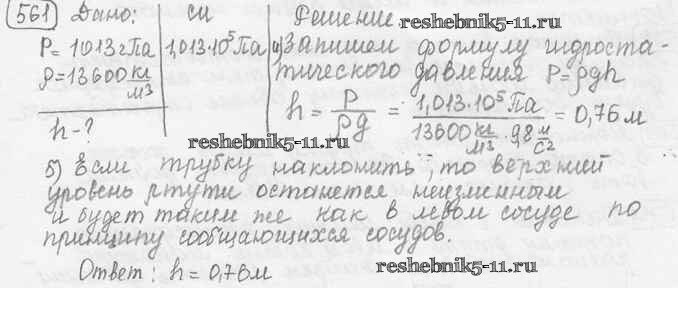 561 Дано: СИ Решение
reshebnik5-11.ru
P=1013гПа 1,013·10⁵Па а) Запишем формулу гидроста-
ρ=13600 кг/м3 тического давления P=ρgh
h-? h = P/ρg = 1,013·10⁵Па / 13600 кг/м3 · 9,8 м/с2 = 0,76м
reshebnik5-11.ru
б) Если трубку наклонить, то верхний
уровень ртути останется неизменным
и будет таким же как в левом сосуде по
принципу сообщающихся сосудов.
Ответ: h = 0,76м
reshebnik5-11.ru